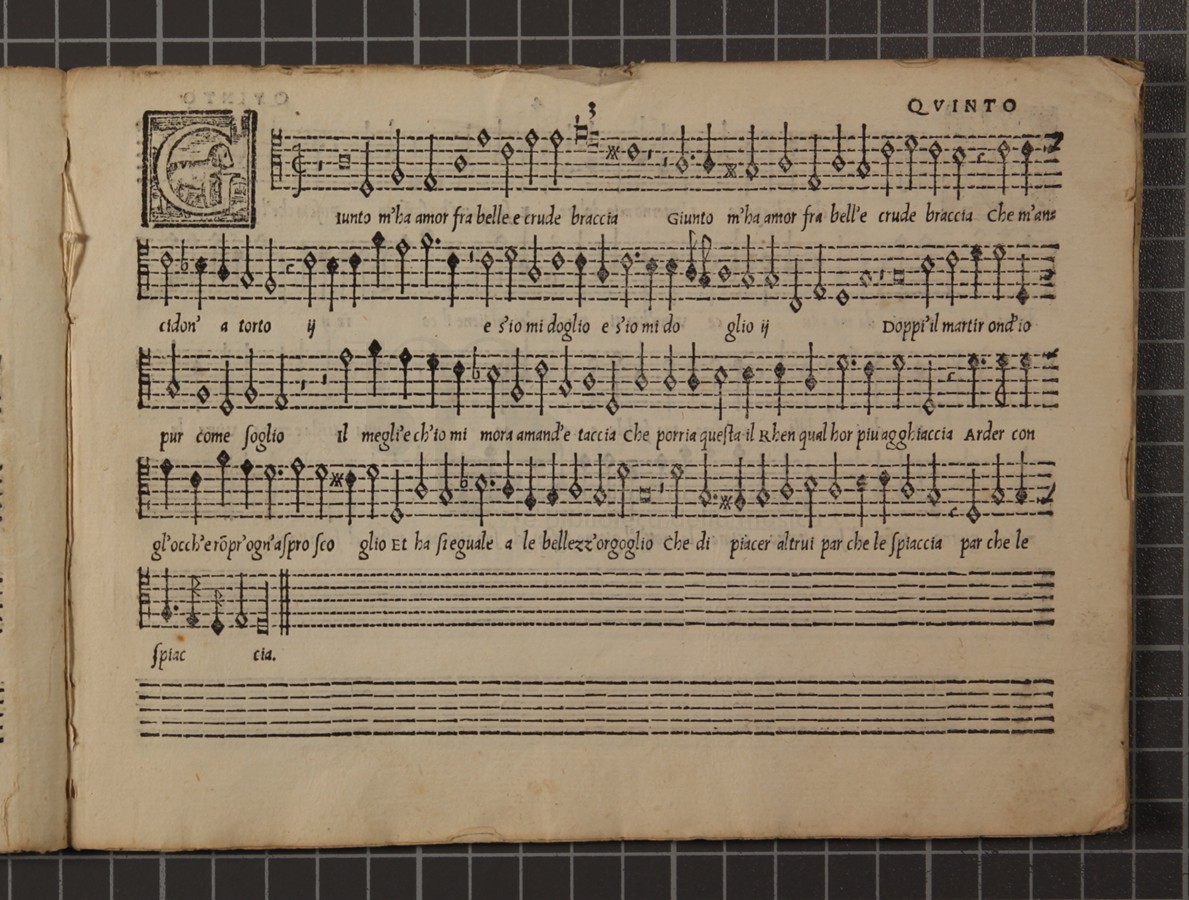 3
QVINTO
G
iunto m'ha amor fra belle e crude braccia Giunto m'ha amor fra bell'e crude braccia Che m'an=
cidon' a torto ij e s'io mi doglio e s'io mi do glio ij Doppi'il martir ond'io
pur come ſoglio Il megli'e ch'io mi mora amand'e taccia Che porria queſta il Rhen qual hor piu agghiaccia Arder con
gl'occh'e rõpr'ogn'aſpro ſco glio Et ha ſi eguale a le bellezz'orgoglio Che di piacer altrui par che le ſpiaccia par che le
ſpiac cia.